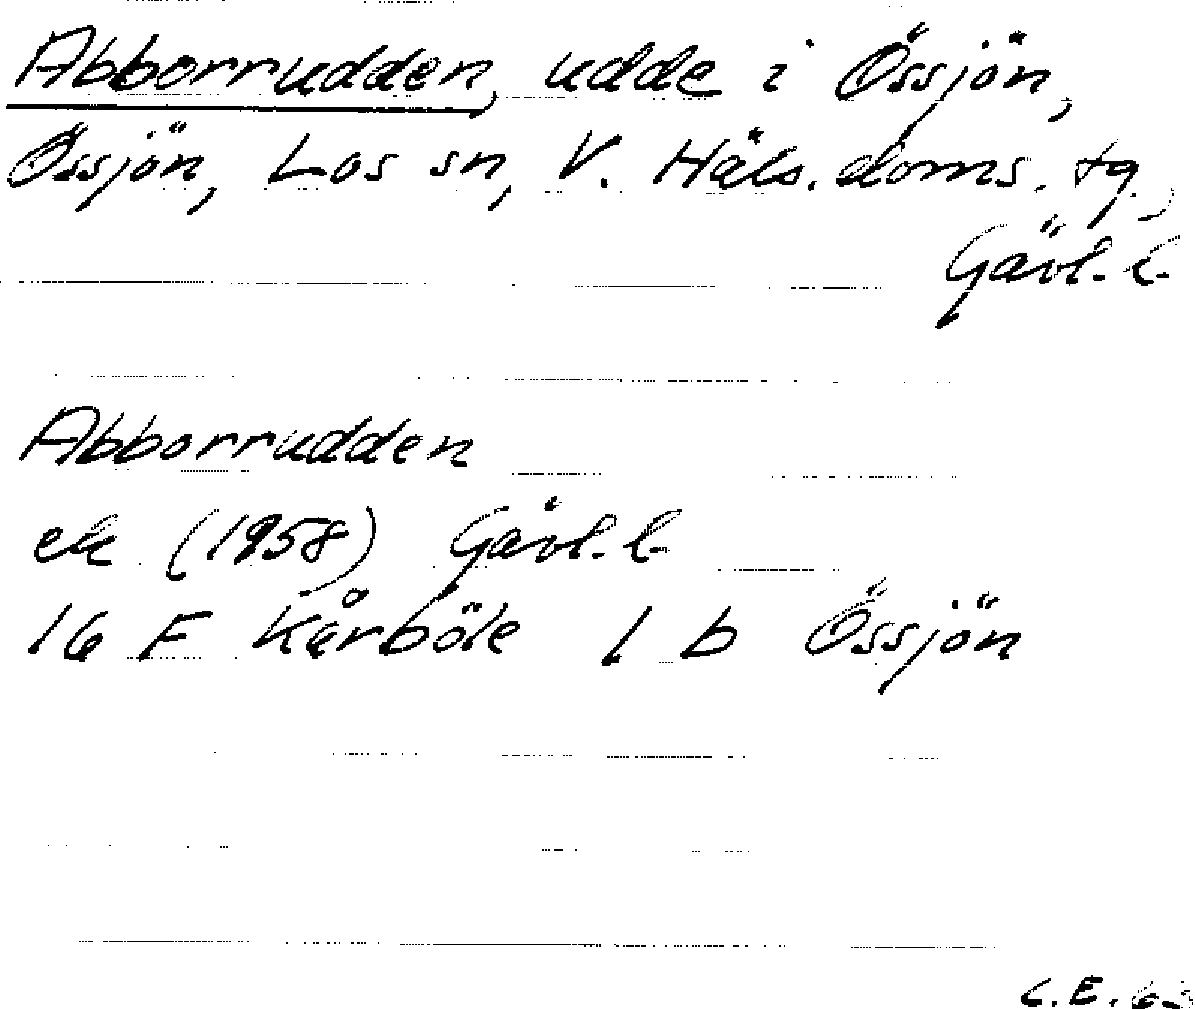 Abborrudden, udde i Össjön,
Össjön, Los sn, V. Häls. doms. tg.,
Gävl. l.
Abborrudden
ek (1958) Gävl. l.
16 F Kårböle 1 b Össjön
C.E. 63